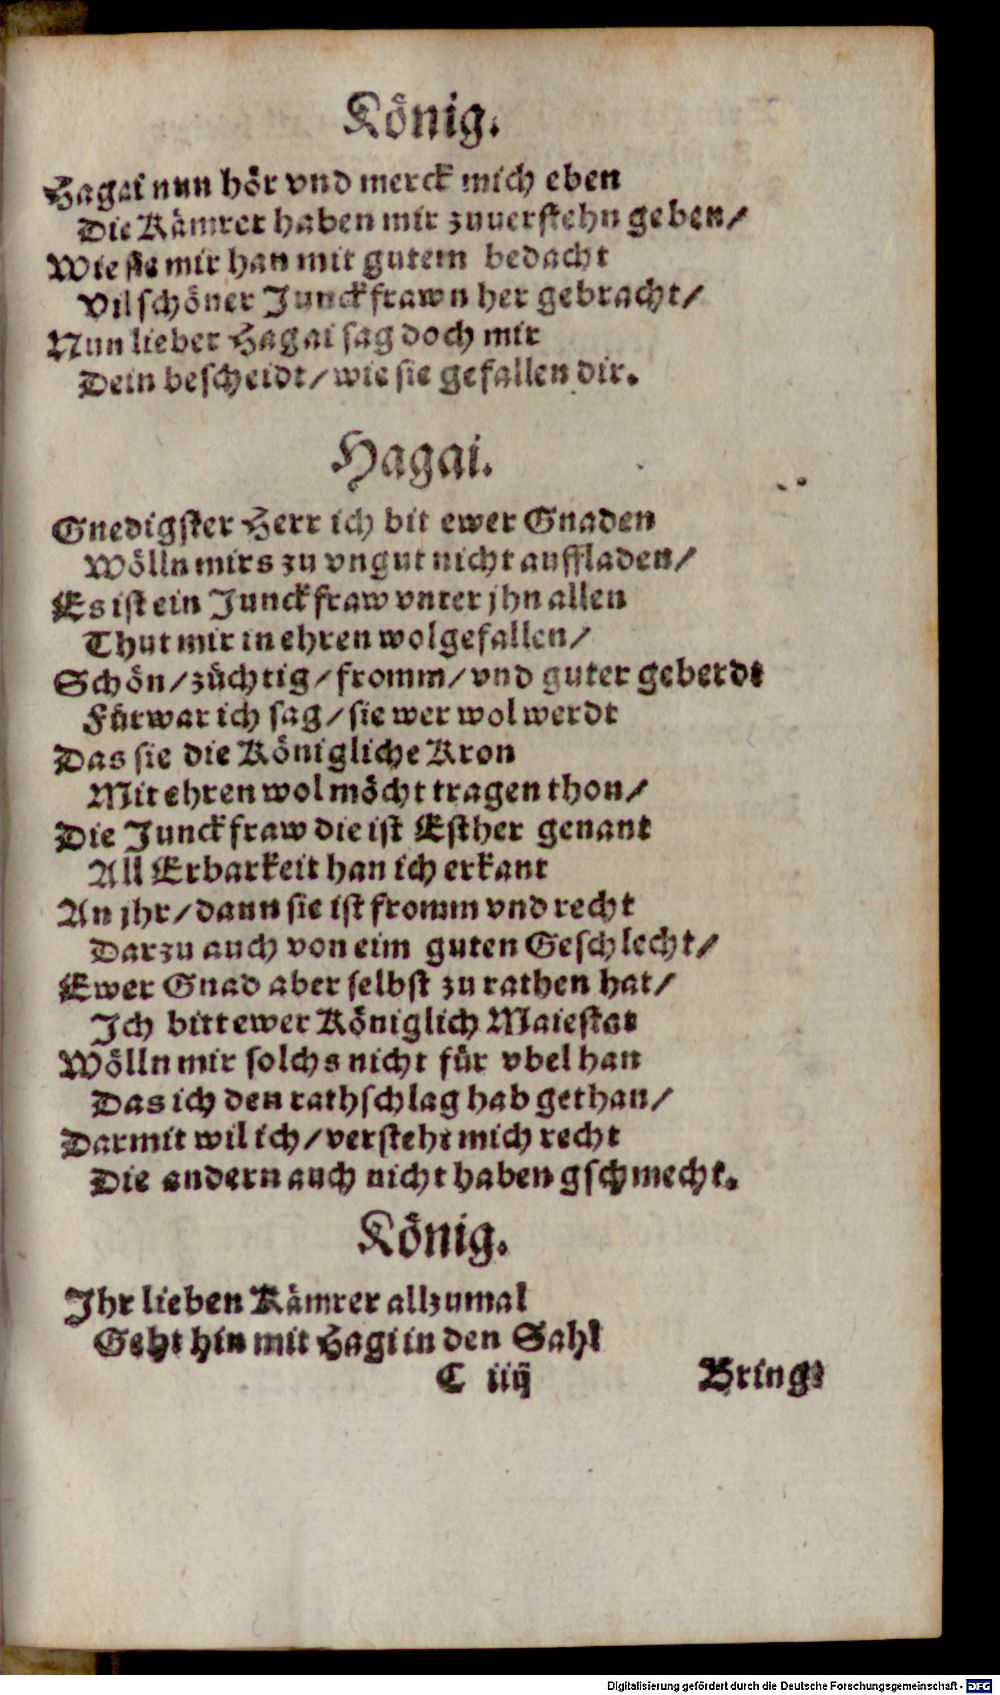 König.
Hagai nun hör vnd merck mich eben
Die Kämrer haben mir zuuerstehn geben/
Wie sie mir han mit gutem bedacht
Vil schöner Junckfrawn her gebracht/
Nun lieber Hagai sag doch mir
Dein bescheidt/ wie sie gefallen dir.
Hagai.
Gnedigster Herr ich bit ewer Gnaden
Wölln mirs zu vngut nicht auffladen/
Es ist ein Junckfraw vnter jhn allen
Thut mir in ehren wolgefallen/
Schön/ züchtig/ fromm/ vnd guter geberdt
Fürwar ich sag/ sie wer wol werdt
Das sie die Königliche Kron
Mit ehren wol möcht tragen thon/
Die Junckfraw die ist Esther genant
All Erbarkeit han ich erkant
An jhr/ dann sie ist fromm vnd recht
Darzu auch von eim guten Geschlecht/
Ewer Gnad aber selbst zu rathen hat/
Ich bitt ewer Königlich Maiestat
Wölln mir solchs nicht für vbel han
Das ich den rathschlag hab gethan/
Darmit wil ich/ versteht mich recht
Die andern auch nicht haben gschmecht.
König.
Ihr lieben Kämrer allzumal
Geht hin mit Hagi in den Sahl
C iiij Bringt
Digitalisierung gefördert durch die Deutsche Forschungsgemeinschaft - DFG